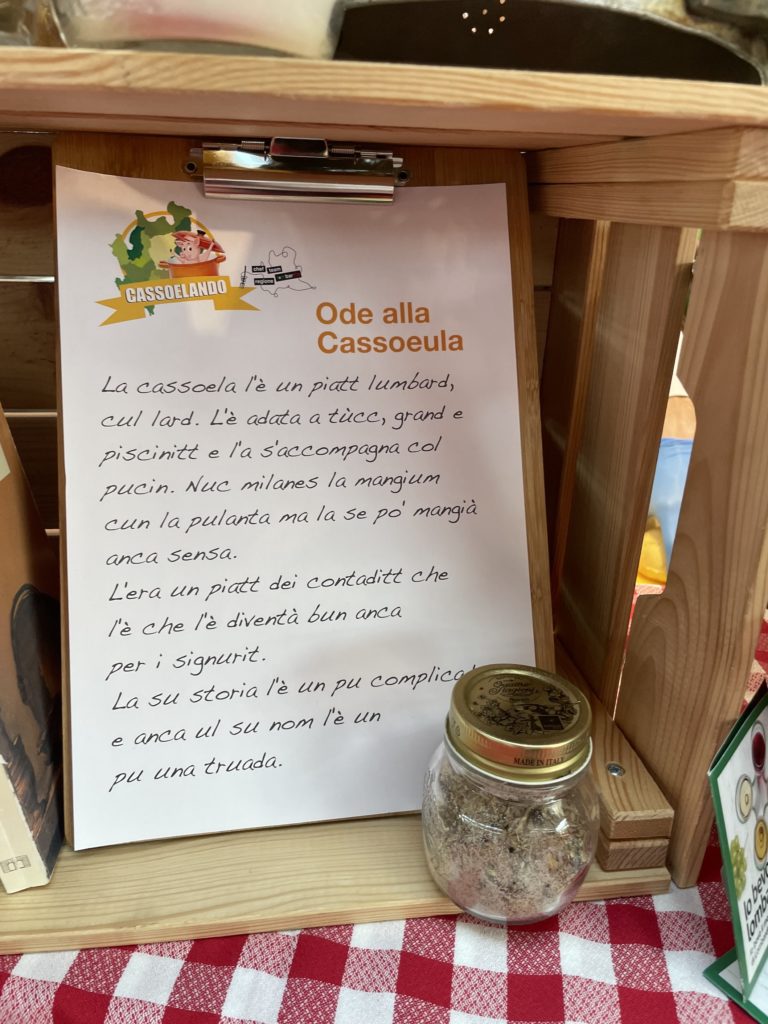 CASSOELANDO
chef team
regione bar
Ode alla
Cassoeula
La cassoela l'è un piatt lumbard,
cul lard. L'è adata a tùcc, grand e
piscinitt e l'a s'accompagna col
pucin. Nuc milanes la mangium
cun la pulanta ma la se po' mangià
anca sensa.
L'era un piatt dei contaditt che
l'è che l'è diventà bun anca
per i signurit.
La su storia l'è un pu complica
e anca ul su nom l'è un
pu una truada.
Quattro
Stagioni
MADE IN ITALY
Io bevo